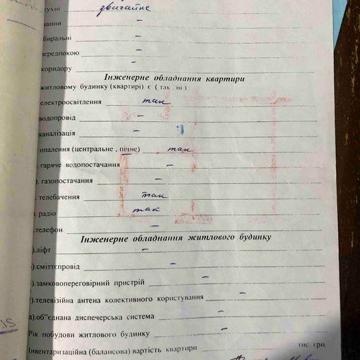 кухні двигайне
ванни –
вбиральні –
передпокою –
коридору –
Інженерне обладнання квартири
житловому будинку (квартирі) є ( так ні )
електроосвітлення так
водопровід –
каналізація –
опалення (центральне , пічне) так
гаряче водопостачання –
газопостачання –
телебачення так
радіо так
телефон –
Інженерне обладнання житлового будинку
ліфт –
сміттєпровід –
замковопереговірний пристрій –
телевізійна антена колективного користування –
об"єднана диспечерська система –
Рік побудови житлового будинку –
Інвентаризаційна (балансова) вартість квартири тис грн